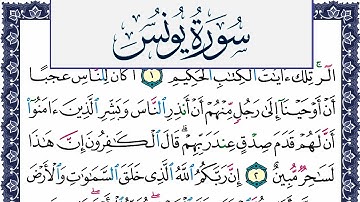 سُورَةُ يُونُسَ
الٓرۚ تِلۡكَ ءَايَٰتُ ٱلۡكِتَٰبِ ٱلۡحَكِيمِ ١ أَكَانَ لِلنَّاسِ عَجَبًا
أَنۡ أَوۡحَيۡنَآ إِلَىٰ رَجُلٖ مِّنۡهُمۡ أَنۡ أَنذِرِ ٱلنَّاسَ وَبَشِّرِ ٱلَّذِينَ ءَامَنُوٓاْ
أَنَّ لَهُمۡ قَدَمَ صِدۡقٍ عِندَ رَبِّهِمۡۗ قَالَ ٱلۡكَٰفِرُونَ إِنَّ هَٰذَا
لَسَٰحِرٞ مُّبِينٌ ٢ إِنَّ رَبَّكُمُ ٱللَّهُ ٱلَّذِي خَلَقَ ٱلسَّمَٰوَٰتِ وَٱلۡأَرۡضَ